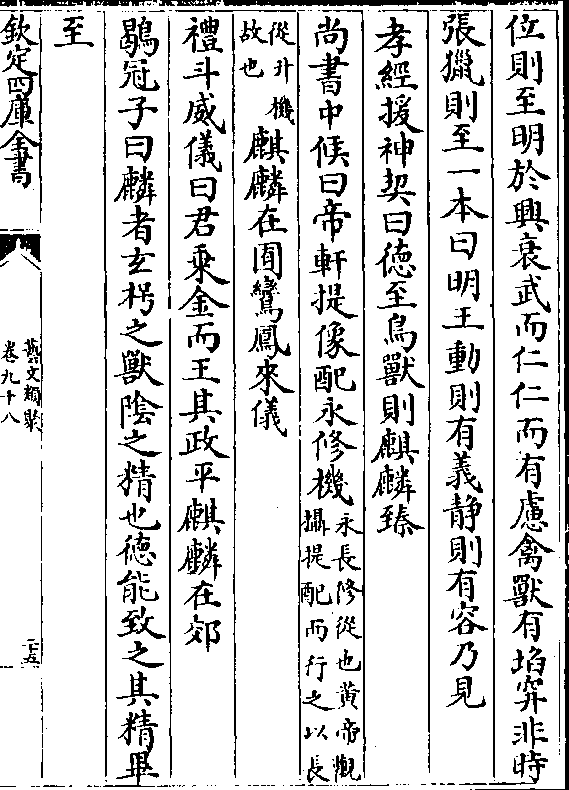 位則至明於興衰武而仁仁而有慮禽獸有埳穽非時
張獵則至一本曰明王動則有義静則有容乃見
孝經援神契曰德至鳥獸則麒麟臻
尚書中候曰帝軒提像配永修機永長修從也黄帝觀攝提配而行之以長
從升機故也麒麟在囿鸞鳳來儀
禮斗威儀曰君乘金而王其政平麒麟在郊
鶡冠子曰麟者玄枵之獸陰之精也德能致之其精畢
至
欽定四庫全書
藝文類聚
卷九十八
二十五